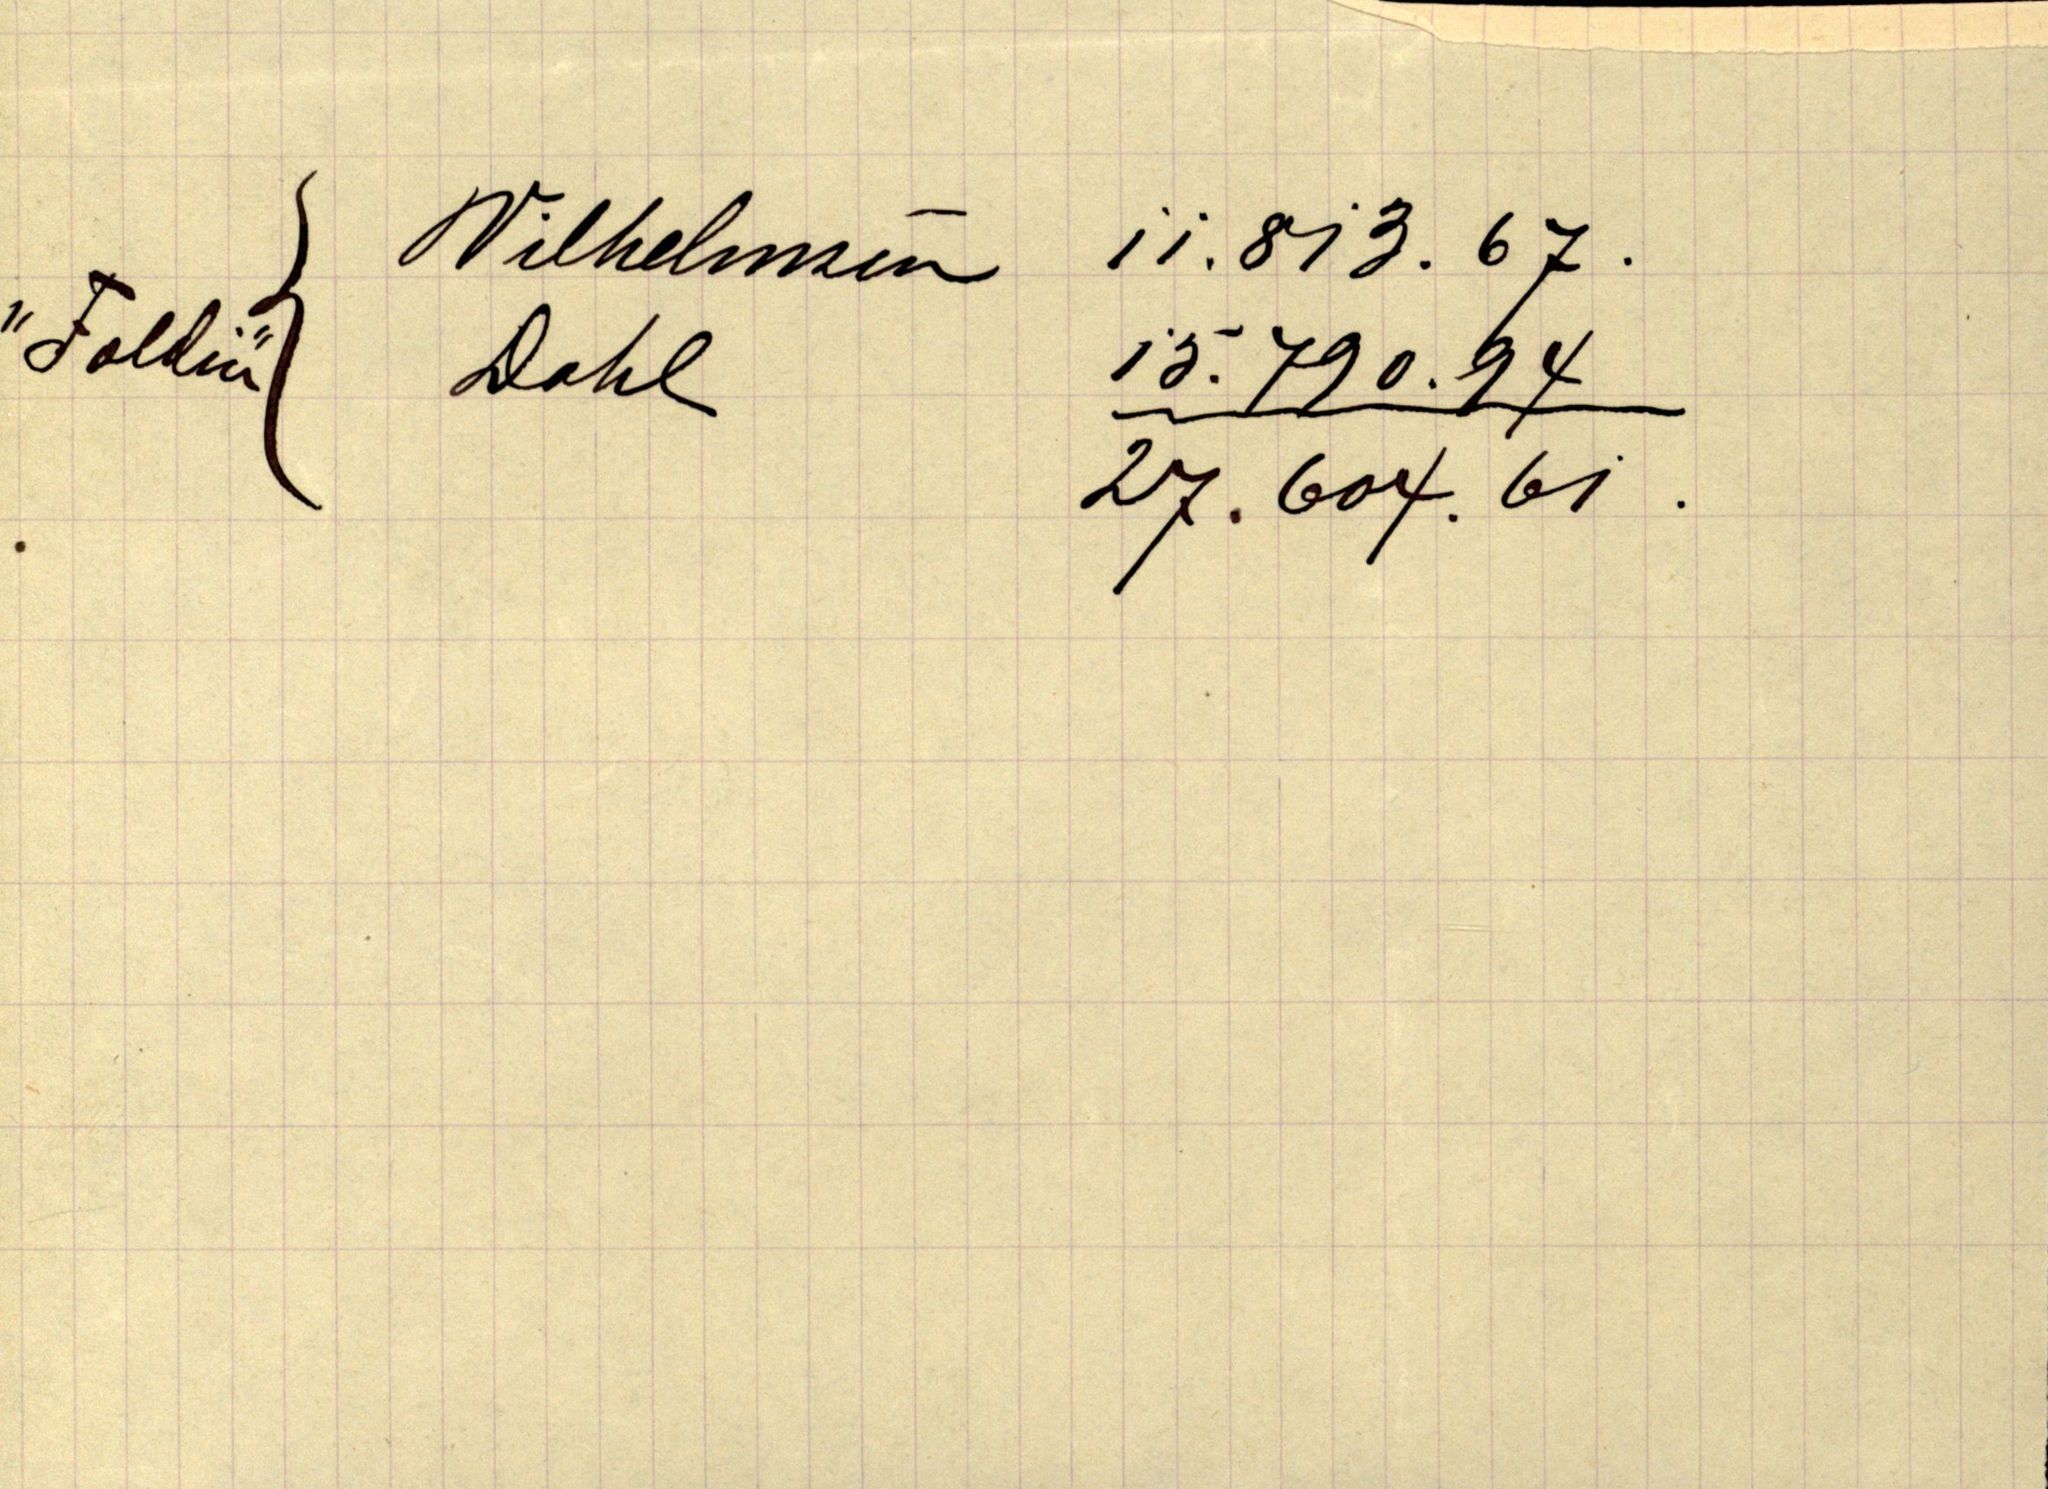 Wilhelmsen 11.813.67.
"Foldin"
Dahl 15.790.94
27.604.61.